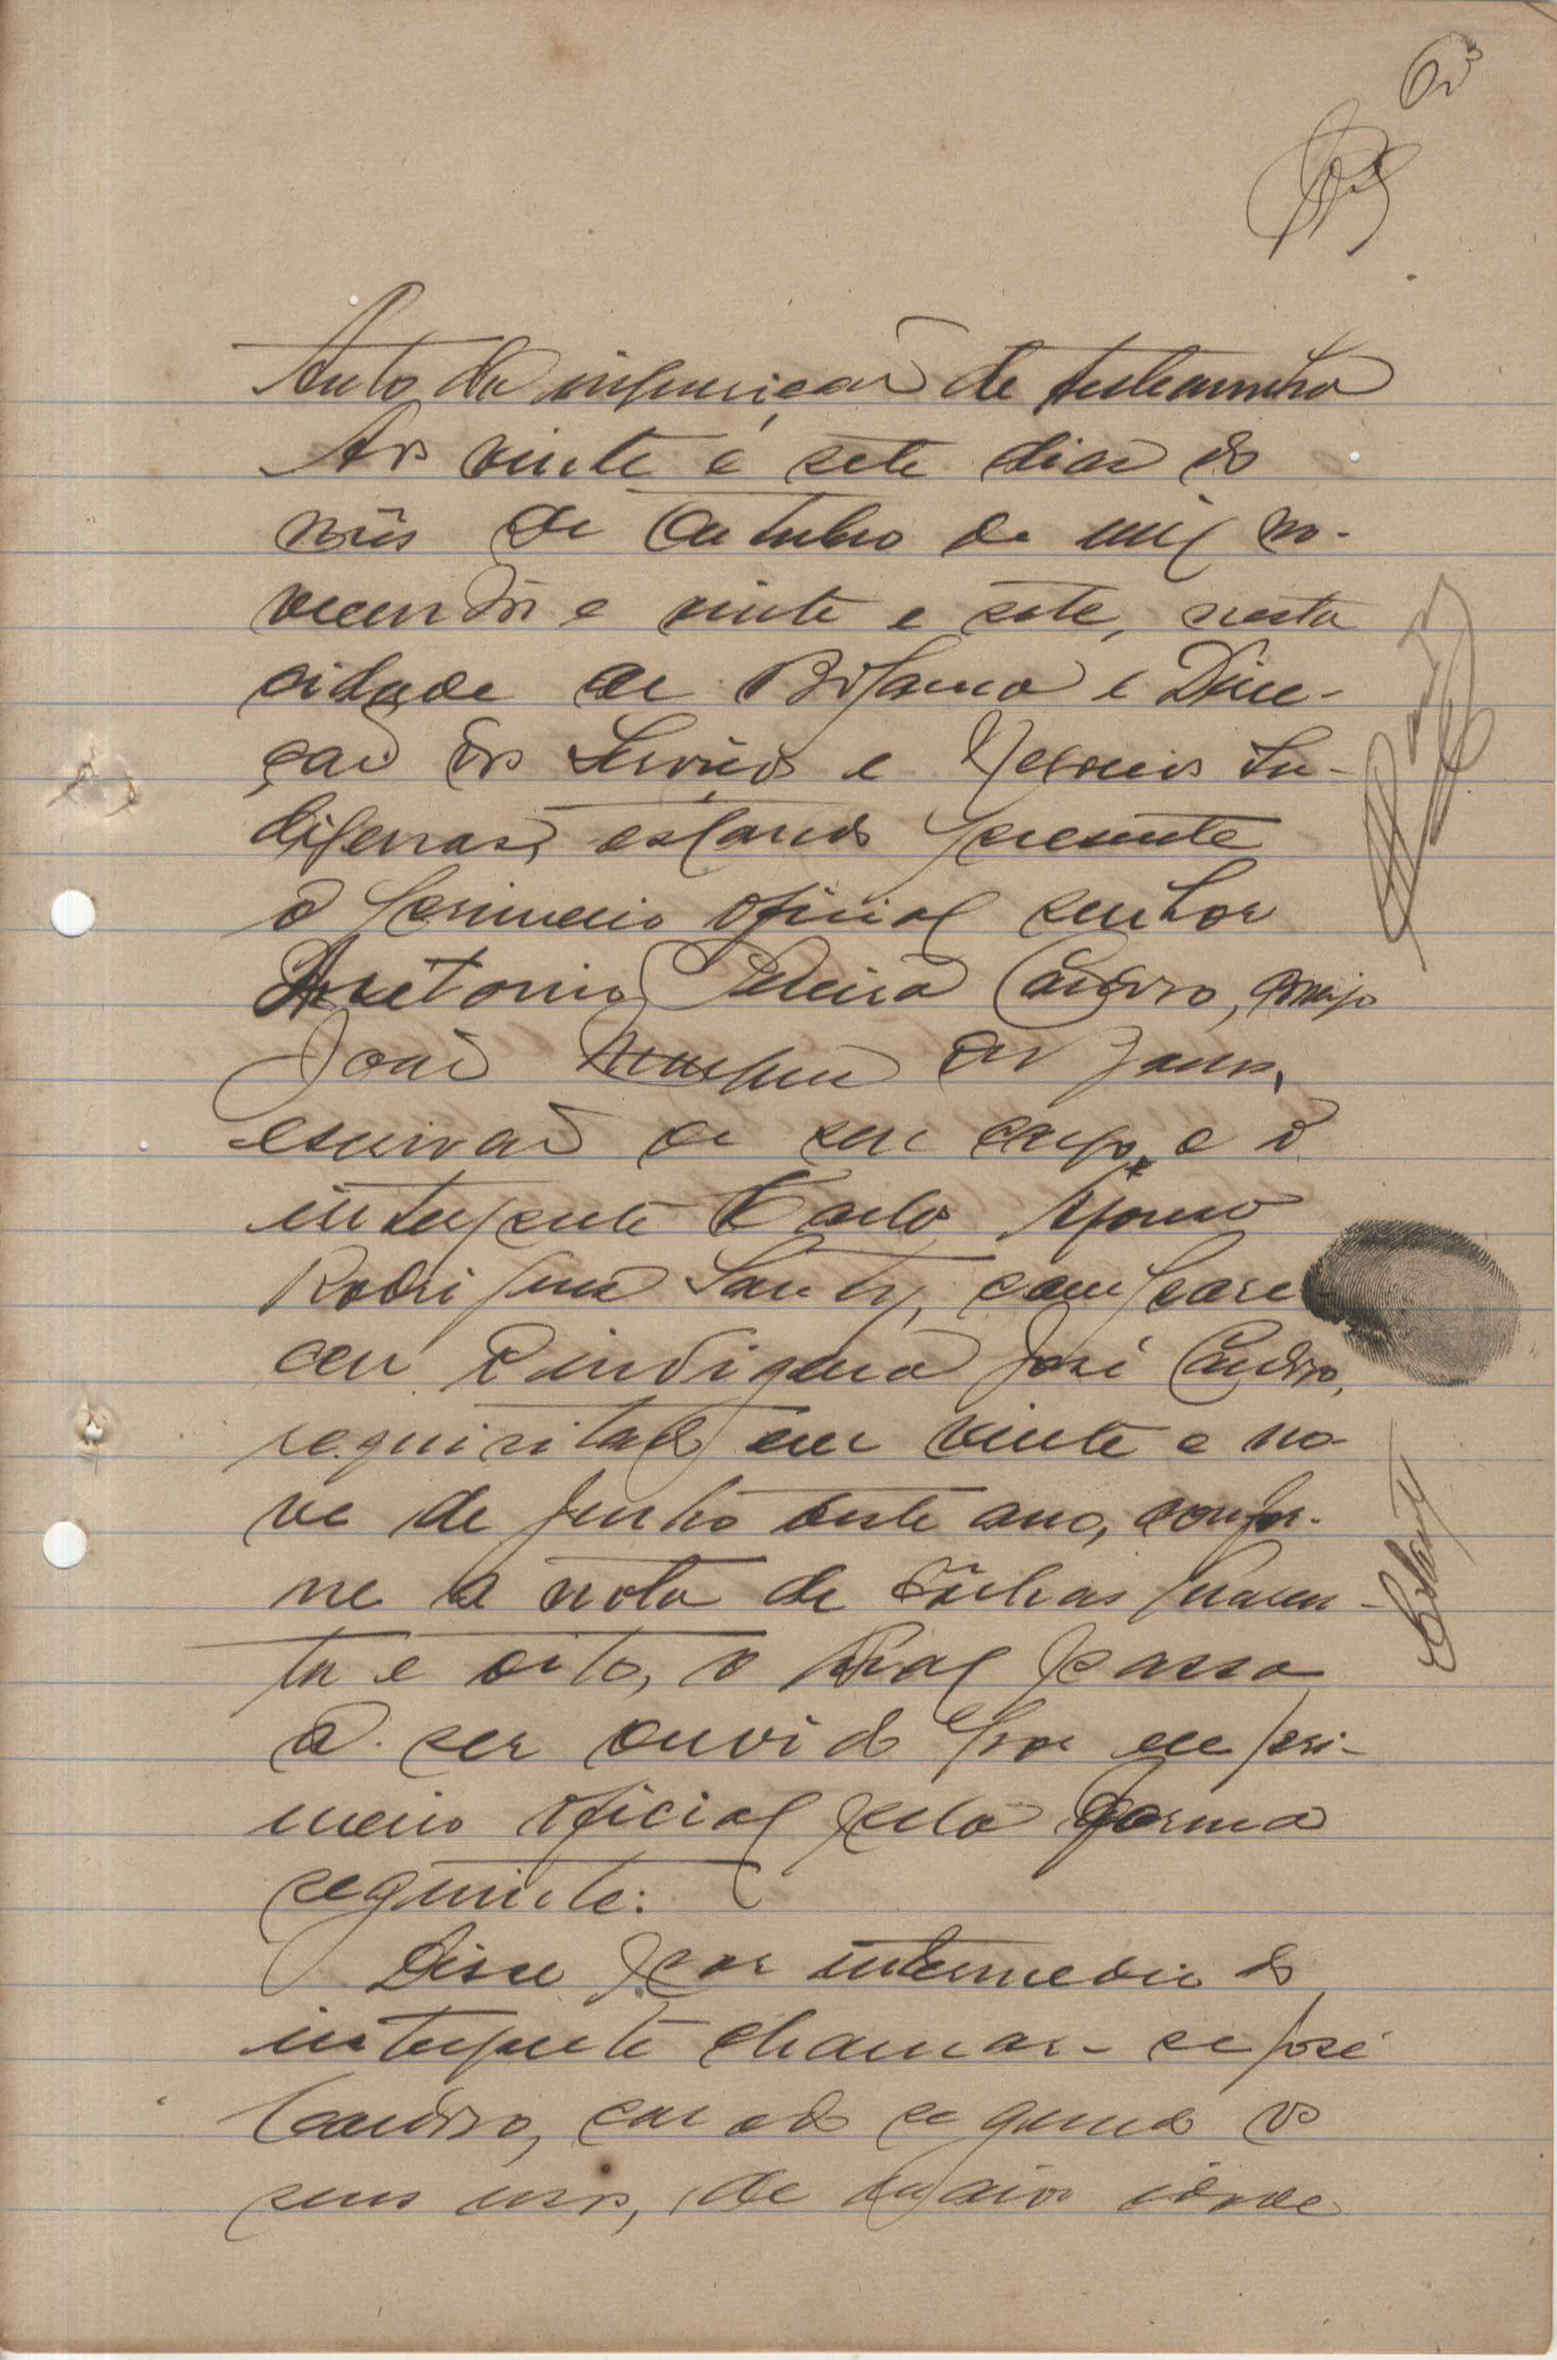 63
Auto de inquirição de testemunha
Aos vinte e sete dias do
mês de Outubro de mil no-
vecentos e vinte e sete, nesta
cidade de Bolama e Direc-
ção dos Serviços e Negocios In-
digenas, estando presente
o primeiro oficial senhor
Antonio Pereira Cardoso, comigo
João de
escrivão de seu cargo, e o
interprete Carlos Afonso
Rodrigues Santy, compare-
ceu o indigena José Cardoso,
requisitado em vinte e no-
ve de Junho deste ano, confor-
me a nota de folhas quaren-
ta e oito, o qual passa
a ser ouvido por ele pri-
meiro oficial pela forma
seguinte:
Disse por intermedio do
interprete chamar-se José
Cardoso, casado segundo os
seus usos, de maior idade